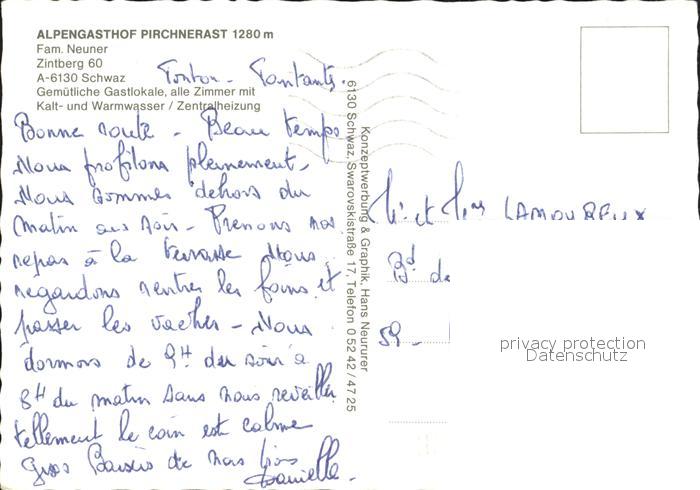 ALPENGASTHOF PIRCHNERAST 1280 m
Fam. Neuner
Zintberg 60
A-6130 Schwaz
Gemütliche Gastlokale, alle Zimmer mit
Kalt- und Warmwasser / Zentralheizung
Tonton - Tantante.
Bonne route - Beau temps
Nous profitons pleinement -
Nous sommes dehors du
matin au soir - Prenons nos
repas à la terrasse Nous
regardons rentrer les foins et
passer les vaches - Nous
dormons de 9H du soir à
8H du matin sans nous réveiller
tellement le coin est calme
Gros Baisers de nous trois
Danielle.
Konzeptwerbung & Graphik, Hans Neururer
6130 Schwaz, Swarovskistraße 17, Telefon 0 52 42 / 47 25
Mr et Mme LAMOUREUX
Bd de
59 -
privacy protection
Datenschutz